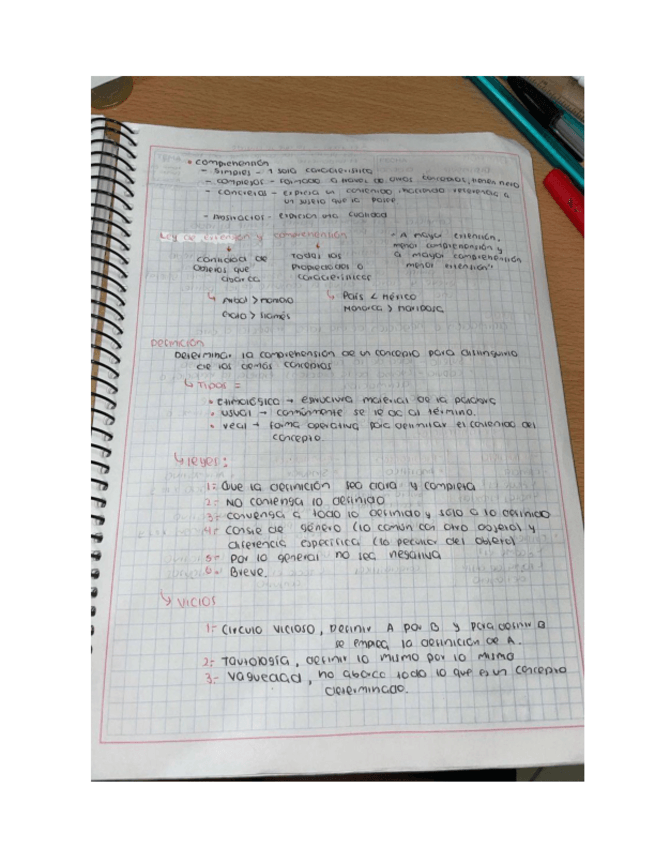 • Comprehensión
- Simples - 1 sola característica
- Complejos - formado a través de otros conceptos, tienen nexo
- Concretos - expresa un contenido haciendo referencia a
un sujeto que la posee
- Abstractos - expresan una cualidad
Ley de extensión y comprehensión
cantidad de
objetos que
abarca
Todas las
propiedades o
características
"A mayor extensión,
menor comprehensión y
a mayor comprehensión
menor extensión"
↳ Árbol > manzano
↳ País < México
Monarca > mariposa
Definición
Determinar la comprehensión de un concepto para distinguirlo
de los demás conceptos
↳ Tipos =
• etimológica → estructura material de la palabra
• usual → comúnmente se le da al término.
• real → forma operativa para delimitar el contenido del
concepto.
↳ leyes:
1:- Que la definición sea clara y completa
2:- NO contenga lo definido
3:- convenga a todo lo definido y sólo a lo definido
4:- Conste de género (lo común con otro objeto) y
diferencia específica (lo peculiar del objeto)
5:- Por lo general no sea negativa
6:- Breve.
↳ VICIOS
1:- Círculo vicioso, Definir A por B y para definir B
se emplea la definición de A.
2:- Tautología, definir lo mismo por lo mismo
3:- Vaguedad, no abarca todo lo que es un concepto
determinado.